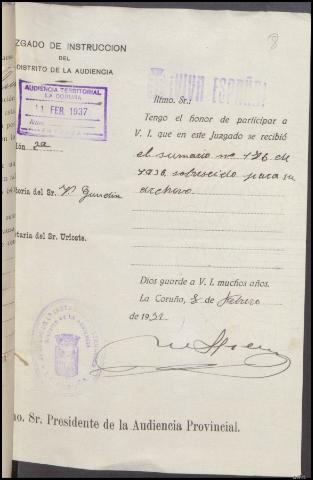 8
ZGADO DE INSTRUCCION
DEL
DISTRITO DE LA AUDIENCIA
AUDIENCIA TERRITORIAL
LA CORUÑA
11 FEB. 1937
¡VIVA ESPAÑA!
Iltmo. Sr.:
Tengo el honor de participar a
V. I. que en este Juzgado se recibió
el sumario nº 176 de
1936, sobreseido para su
archivo.
ión 2ª
toria del Sr.
etaria del Sr. Urioste.
Dios guarde a V. I. muchos años.
La Coruña, 8 de Febrero
de 193
no. Sr. Presidente de la Audiencia Provincial.